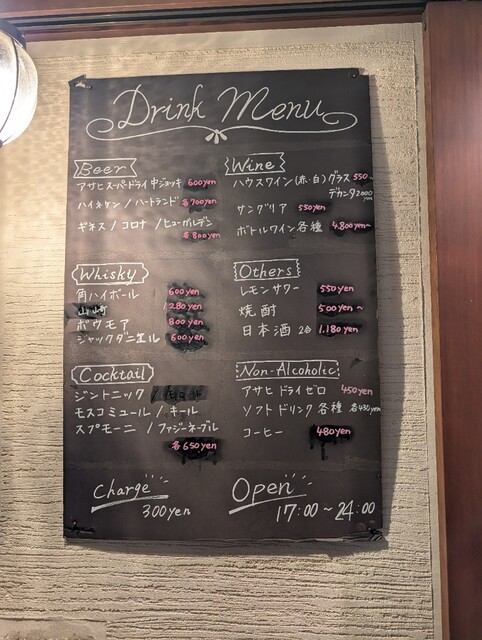 Drink Menu
Beer
アサヒスーパードライ 中ジョッキ 600yen
ハイネケン / ハートランド 各700yen
ギネス / コロナ / ヒューガルデン
各800yen
Wine
ハウスワイン(赤・白) グラス 550
デカンタ 2000
yen
サングリア 550yen
ボトルワイン各種 4,800yen~
Whisky
角ハイボール 600yen
山崎 1,280yen
ボウモア 800yen
ジャックダニエル 600yen
Others
レモンサワー 550yen
焼酎 500yen~
日本酒 2合 1,180yen
Cocktail
ジントニック /
モスコミュール / キール
スプモーニ / ファジーネーブル
各650yen
Non-Alcoholic
アサヒ ドライゼロ 450yen
ソフトドリンク 各種 各430yen
コーヒー 480yen
Charge
300yen
Open
17:00~24:00